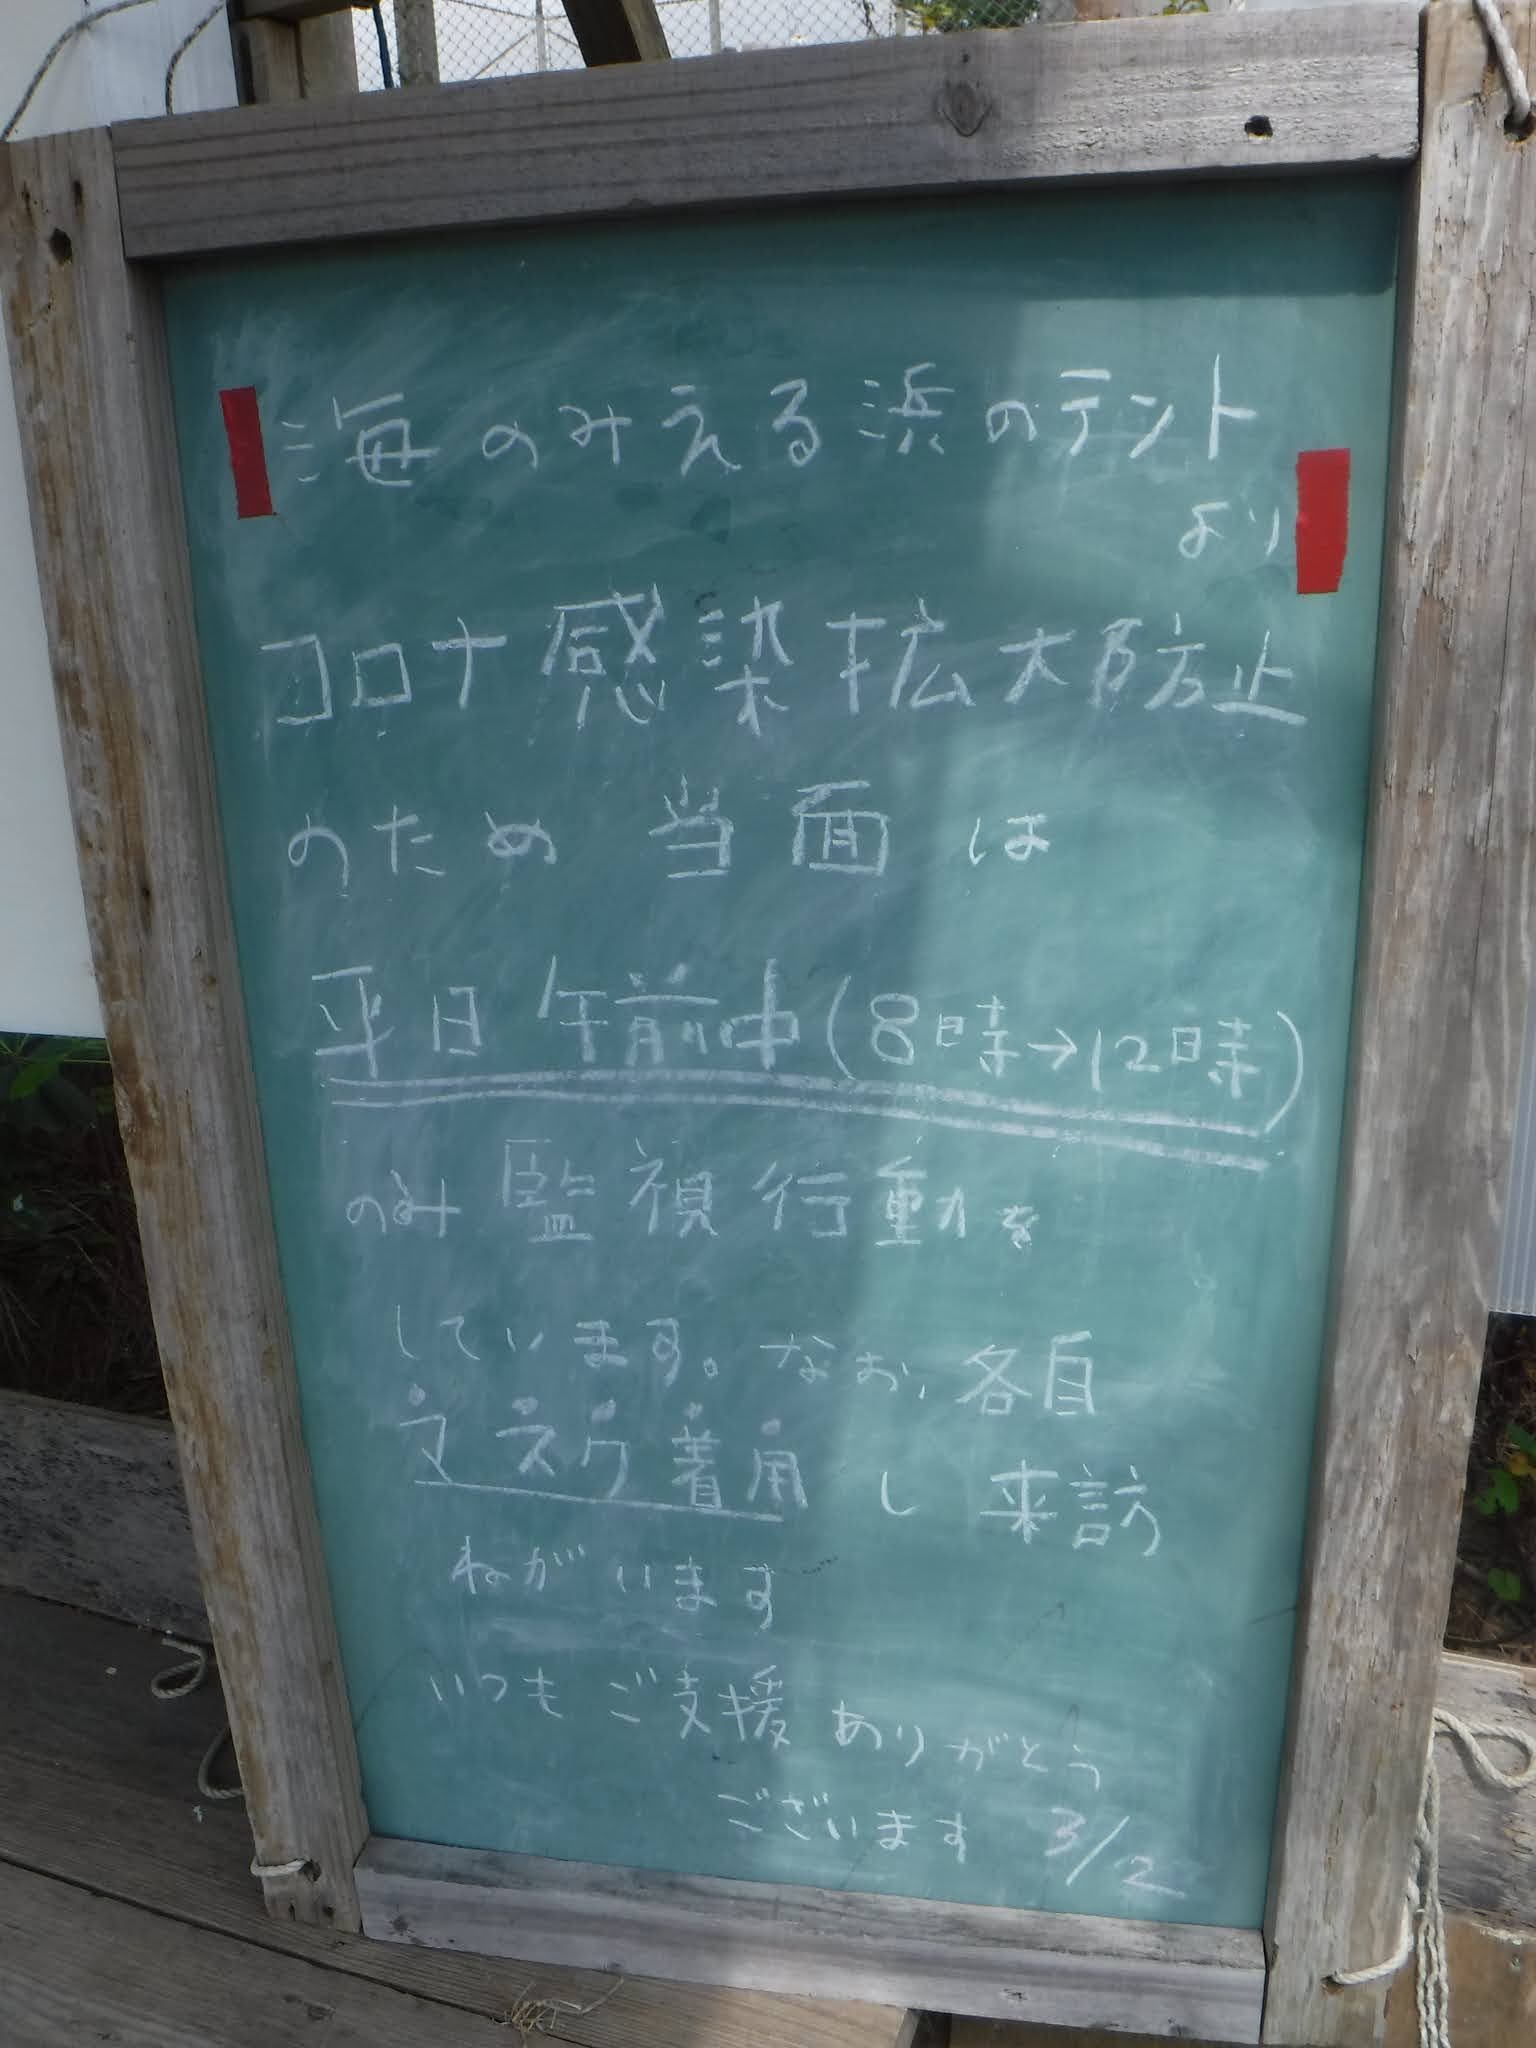 海のみえる浜のテント
より
コロナ感染拡大防止
のため 当面 は
平日 午前中(8時→12時)
のみ 監視行動を
しています。なお、各自
マスク着用 し 来訪
ねがいます
いつも ご支援 ありがとう
ございます 3/2